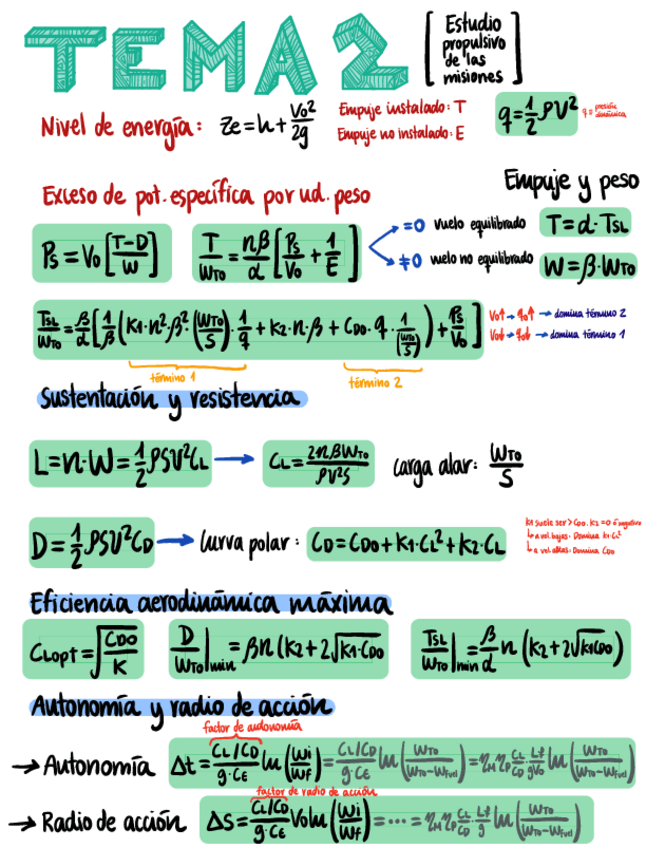 TEMA 2
[Estudio propulsivo de las misiones]
Nivel de energía: Ze = h + V0²/2g
Empuje instalado: T
Empuje no instalado: E
q = 1/2 ρV²
q ≡ presión dinámica
Exceso de pot. específica por ud. peso
Empuje y peso
Ps = V0 [(T-D)/W]
T/WTO = nβ/α [Ps/V0 + 1/E]
=0 vuelo equilibrado
≠0 vuelo no equilibrado
T = α·TSL
W = β·WTO
TSL/WTO = β/α [1/β (K1·n²·β²·(WTO/S)·1/q + K2·n·β + CD0·q·1/(WTO/S)) + Ps/V0]
término 1
término 2
V0↑ → q0↑ → domina término 2
V0↓ → q0↓ → domina término 1
Sustentación y resistencia
L = n·W = 1/2 ρSV²CL → CL = 2nβWTO/ρV²S
carga alar: WTO/S
D = 1/2 ρSV²CD → Curva polar: CD = CD0 + K1·CL² + K2·CL
K1 suele ser > CD0. K2 = 0 ó negativo
↳ a vel. bajas: Domina K1·CL²
↳ a vel. altas: Domina CD0
Eficiencia aerodinámica máxima
CLopt = √(CD0/K)
D/WTO|min = βn (K2 + 2√(K1·CD0))
TSL/WTO|min = β/α n (K2 + 2√(K1CD0))
Autonomía y radio de acción
factor de autonomía
→ Autonomía Δt = (CL/CD)/(g·CE) ln(Wi/Wf) = (CL/CD)/(g·CE) ln(WTO/(WTO-Wfuel)) = ηM ηP CL/CD · Lf/gV0 ln(WTO/(WTO-Wfuel))
factor de radio de acción
→ Radio de acción ΔS = (CL/CD)/(g·CE) V0 ln(Wi/Wf) = ... = ηM ηP CL/CD · Lf/g ln(WTO/(WTO-Wfuel))